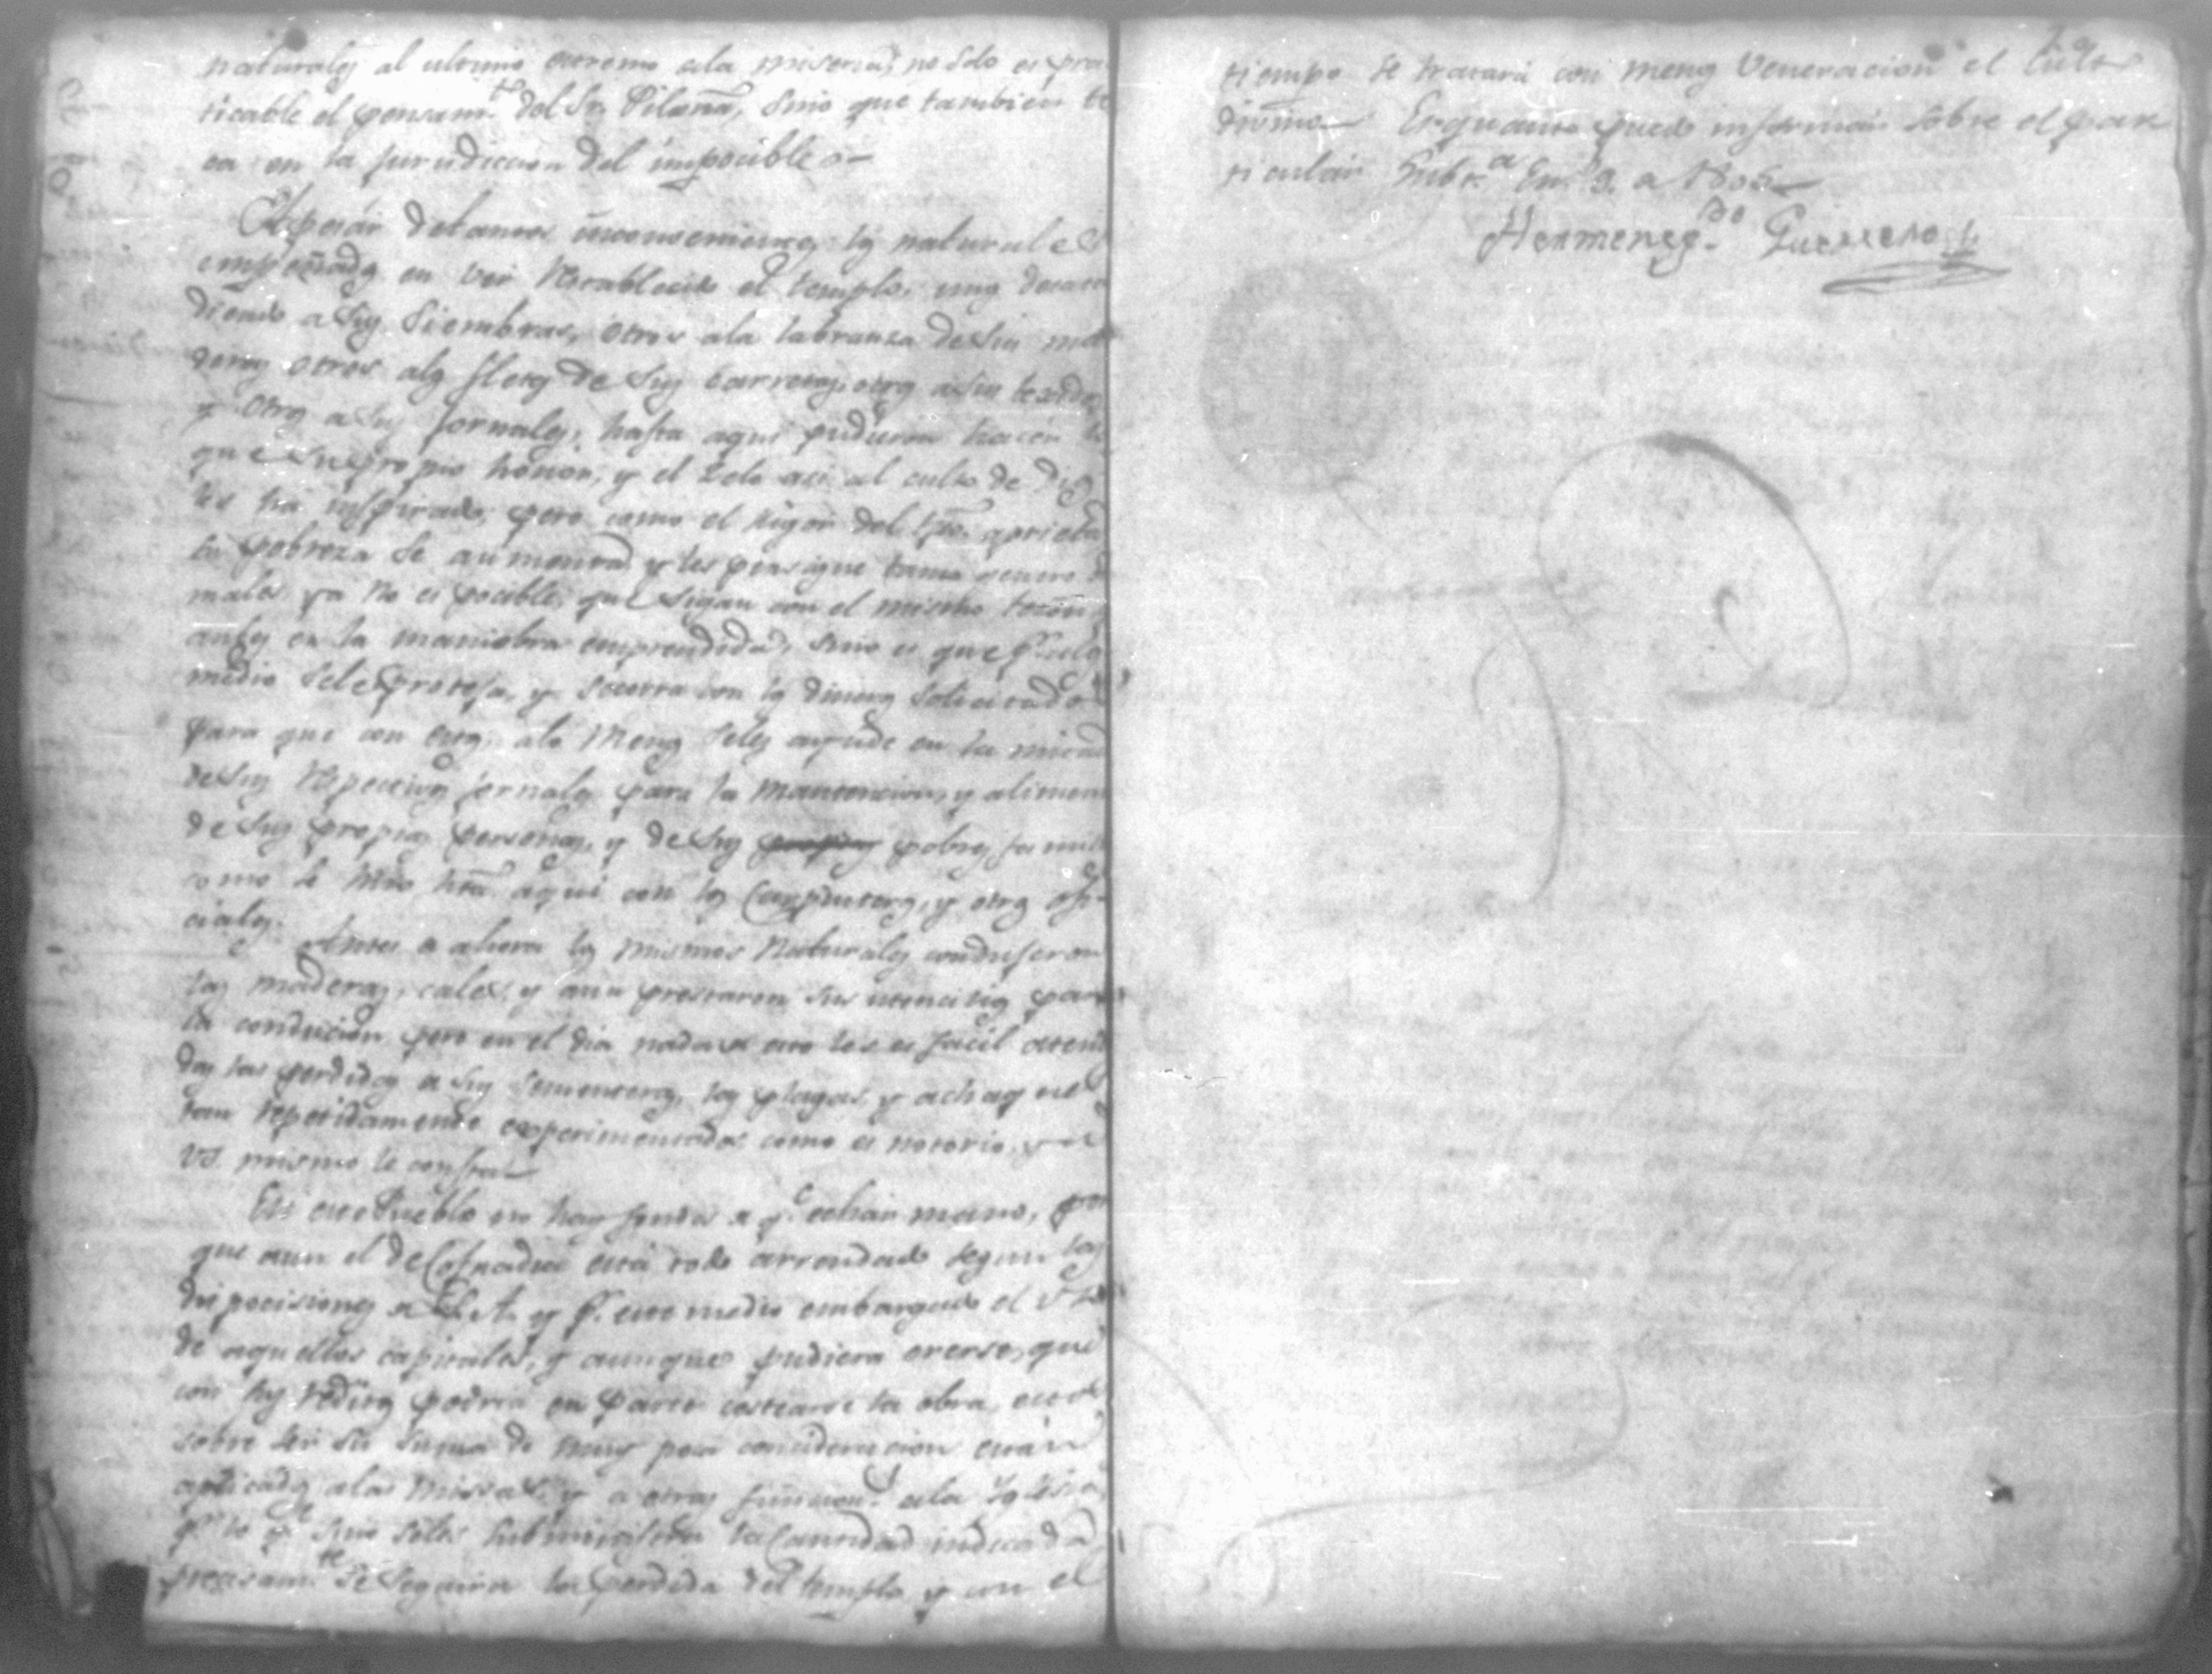 naturales al ultimo extremo dela miseria, no solo es prac
ticable el pensam.to del Sr. sino que tambien to
ca en la jurudiccion del imposible.
Apesár de tantos inconvenientes los naturales
empeñados en ver Restablecido el templo, unos desaten
diendo a sus Siembras, otros ala labranza de sus ma
deras otros alos fletes de sus carretas, otros a sus texidos
y otros a sus jornales, hasta aqui pudieron hacér lo
que su propio honór, y el zelo acia al culto de Dios
les ha inspirado, pero como el rigor del tpo. aprieta
la pobreza se aumenta y les persigue tanto genero de
males ya no es pocible, que sigan con el mismo tezón
antes en la maniobra emprendida, sino es que pr. algun
medio sele proteja, y socorra con los dineros solicitados
para que con estos, alo menos seles ayude en la mitad
de sus respectivos jornales para la mantencion, y alimento
de sus propias personas, y de sus propias pobres famil
como se hizo hta. aqui con los Carpinteros, y otros ofi
ciales.
Antes de ahora los mismos Naturales condujeron
las maderas, cales, y aun prestaron sus utencilios para
la conducion pero en el dia nada de esto les es facil atendi
das las perdidas de sus sementeras, las plagas, y achaques
tan repetidamente experimentados como es notorio, y a
VS. mismo le consta
En este Pueblo no hay fondos de q.e echar mano, por
que aun el de Cofradia está todo arrendado segun las
disposiciones de S. A. y pr. este medio embargado el uso
de aquellos capitales, y aunque pudiera creerse, que
con los reditos podria en parte costearse la obra, estos
sobre ser su suma de muy poca concideracion están
aplicados alas Missas, y a otras funcion.s dela Yglesia,
pr. lo q.e sino seles subministra la Cantidad indicada
precisam.te se seguira la perdida del templo y con el
tiempo se tratará con menos Veneracion el culto
divino. Es quanto puedo informár sobre el par
ticulár En.o 9. de
Hermeneg.do Guerrero